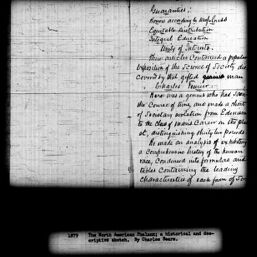 Guarantees:
Honor according to Usefulness
Equitable Distribution
Integral Education
Unity of Interests.
These articles contained a popular
exposition of the Science of Society dis
covered by that gifted man
Charles Fourier.
Here was a genius who had
the Course of time, and made a chart
of Societary evolution from Edenism
to the close of man's Career on the plan
et, distinguishing thirty two periods
He made an analysis of
a Comprehensive history of the human
race, Condensed into formulae and
tables Containing the leading
Characteristics of each form of Soc
1879 The North American Phalanx; a historical and des-
criptive sketch. By Charles Sears.